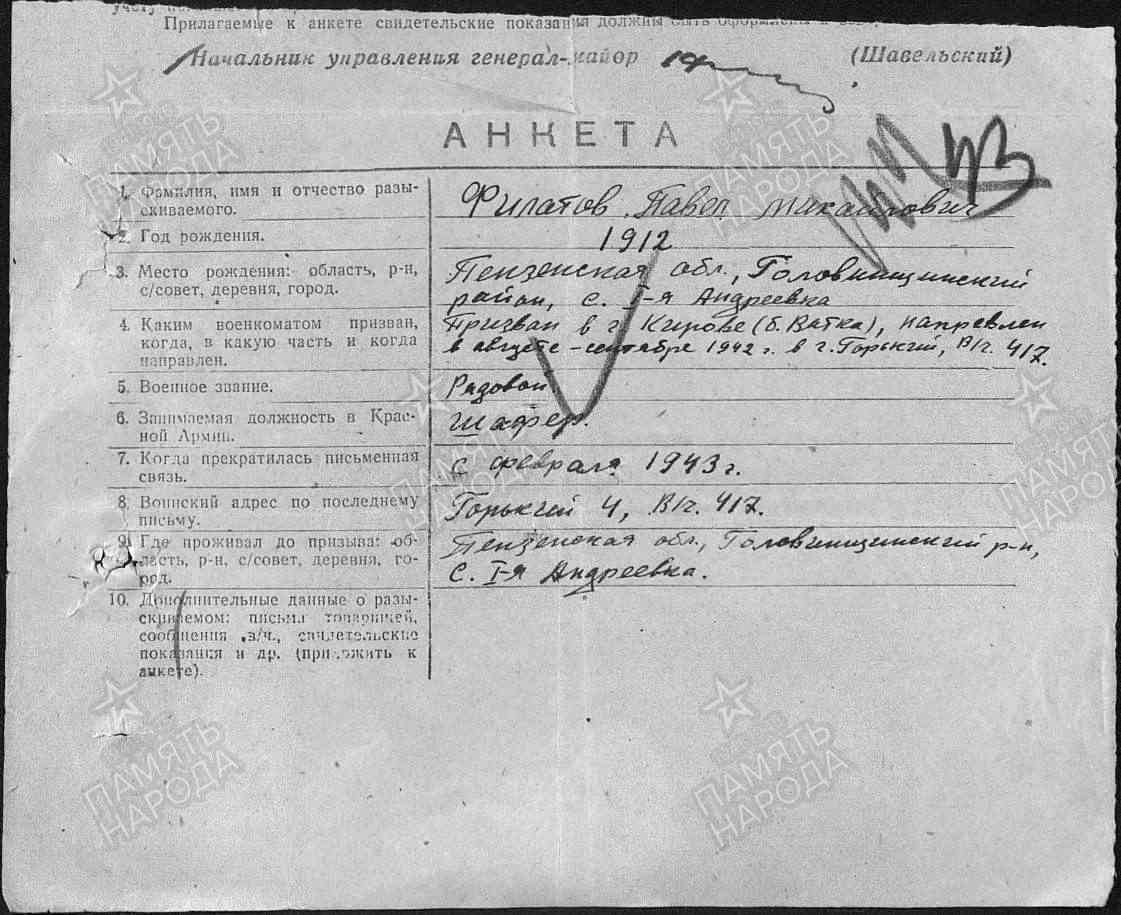 Прилагаемые к анкете свидетельские показания должны быть оформлены
Начальник управления генерал-майор (Шавельский)
АНКЕТА
1. Фамилия, имя и отчество разы-
скиваемого.
Филатов Павел Михайлович
2. Год рождения.
1912
3. Место рождения: область, р-н,
с/совет, деревня, город.
Пензенская обл., Головинщинский
район, с. I-я Андреевка
4. Каким военкоматом призван,
когда, в какую часть и когда
направлен.
Призван в г. Кирове (б. Вятка), направлен
в августе-сентябре 1942 г. в г. Горький, В/ч. 417.
5. Военное звание.
Рядовой.
6. Занимаемая должность в Крас-
ной Армии.
Шофер.
7. Когда прекратилась письменная
связь.
С февраля 1943 г.
8. Воинский адрес по последнему
письму.
Горький 4, В/ч. 417.
9. Где проживал до призыва: об-
ласть, р-н, с/совет, деревня, го-
род.
Пензенская обл., Головинщинский р-н,
с. I-я Андреевка.
10. Дополнительные данные о разы-
скиваемом: письма товарищей,
сообщения в/ч., свидетельские
показания и др. (приложить к
анкете).
ПАМЯТЬ
НАРОДА
ПАМЯТЬ
НАРОДА
ПАМЯТЬ
НАРОДА
ПАМЯТЬ
НАРОДА
ПАМЯТЬ
НАРОДА
ПАМЯТЬ
НАРОДА